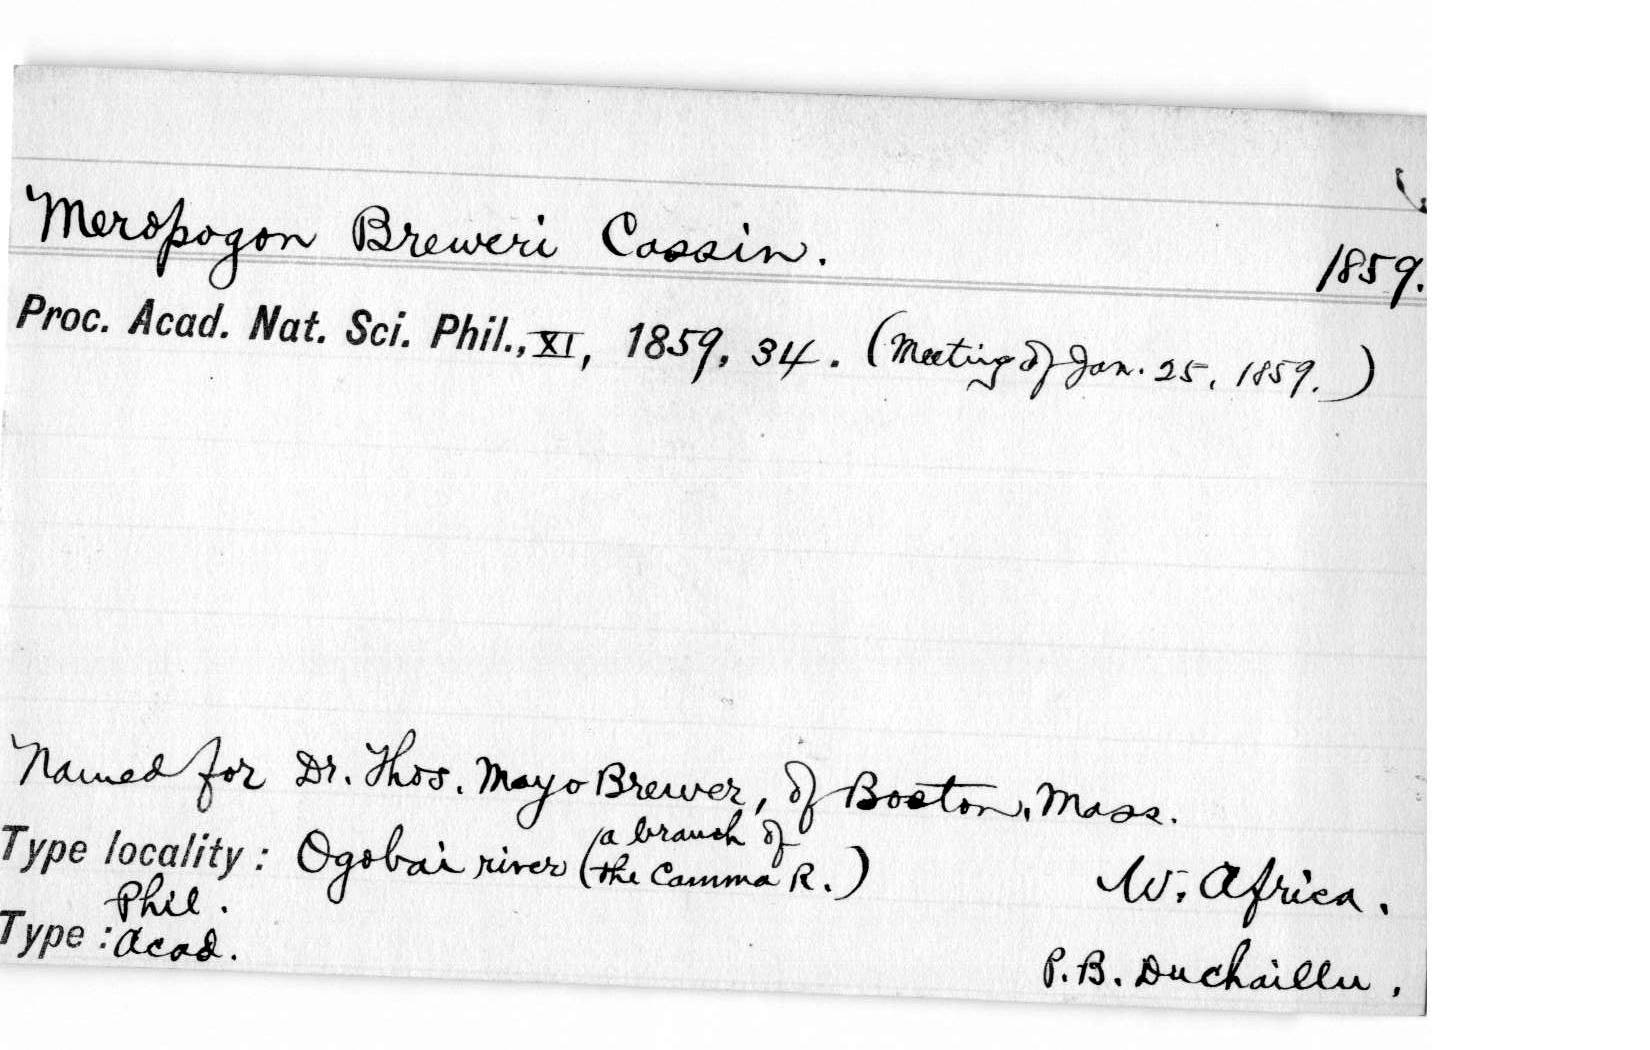 Meropogon Breweri Cassin.
1859.
Proc. Acad. Nat. Sci. Phil., XI, 1859, 34. (Meeting of Jan. 25, 1859.)
Named for Dr. Thos. Mayo Brewer, of Boston, Mass.
Type locality: Ogobai river (a branch of the Camma R.) W. Africa.
Type: Phil. Acad. P. B. Duchaillu.